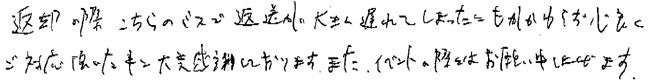 返却の際こちらのミスで返送が大きく遅れてしまったにもかかわらず心良く
ご対応頂いた事を大変感謝しております。また、イベントの際はお願い申し上げます。